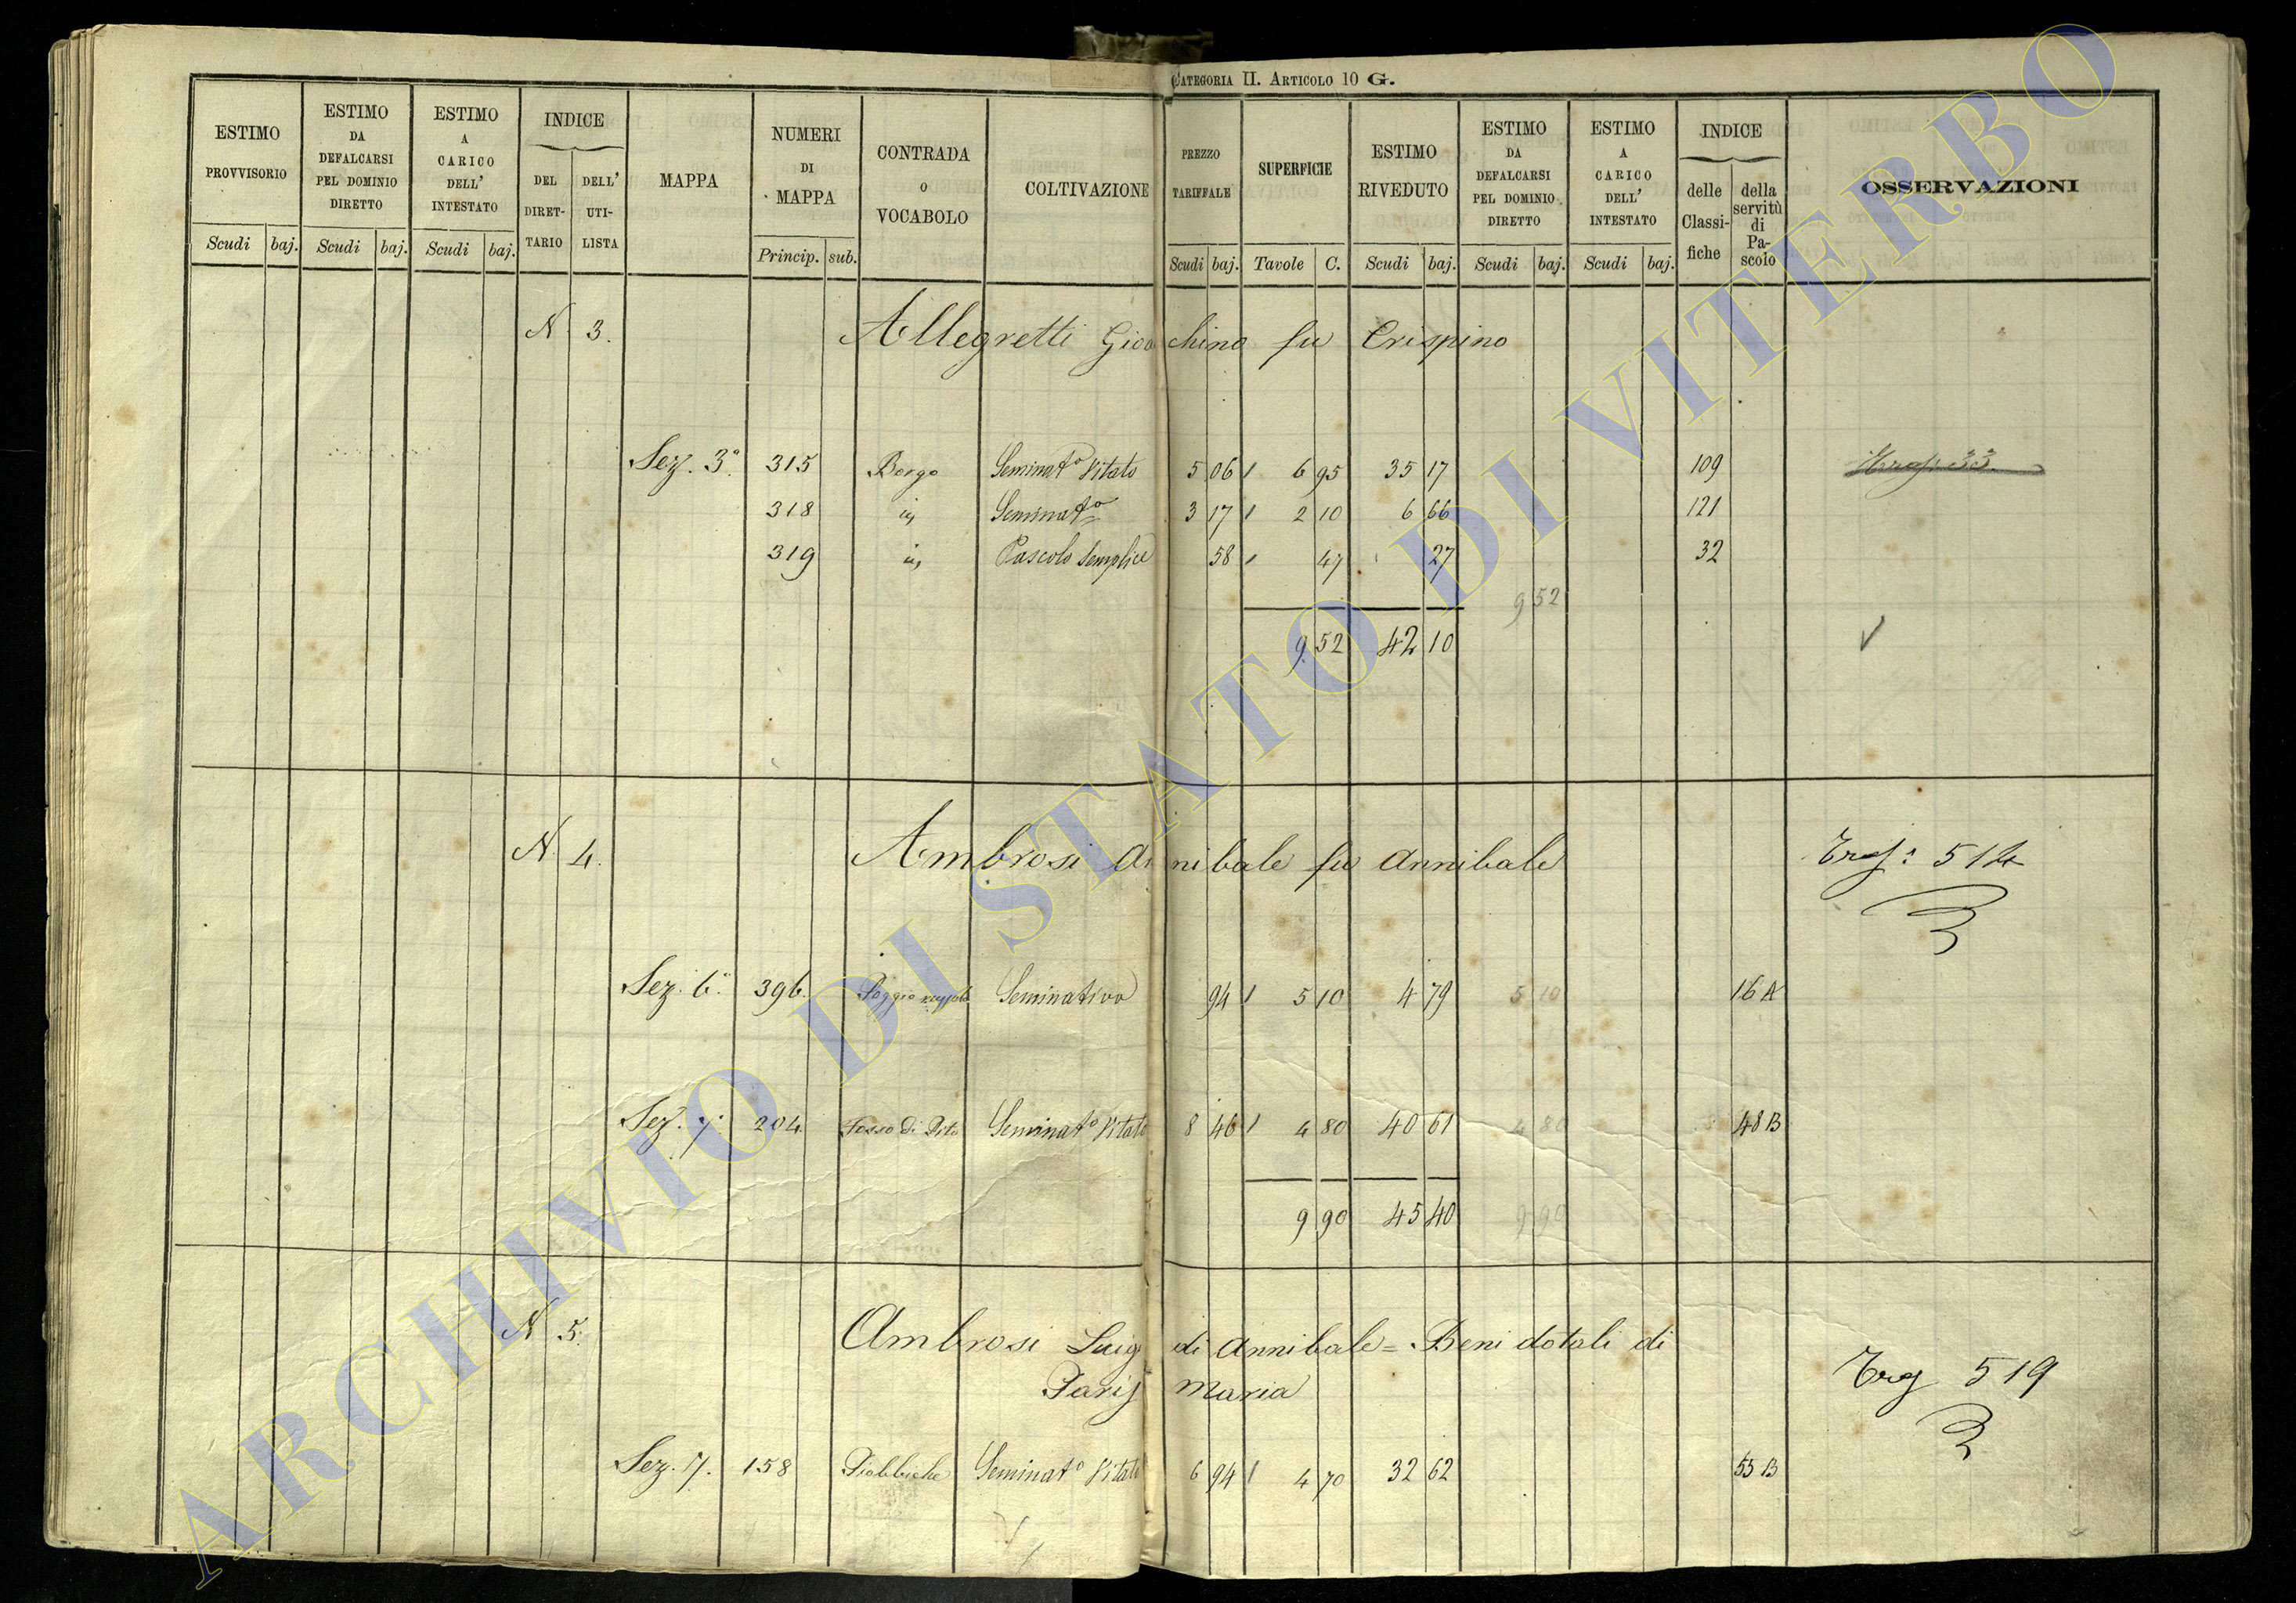 CATEGORIA II. ARTICOLO 10 G.
ESTIMO PROVVISORIO
ESTIMO DA DEFALCARSI PEL DOMINIO DIRETTO
ESTIMO A CARICO DELL' INTESTATO
INDICE
DEL DIRETTARIO
DELL' UTILISTA
MAPPA
NUMERI DI MAPPA
CONTRADA O VOCABOLO
COLTIVAZIONE
PREZZO TARIFFALE
SUPERFICIE
ESTIMO RIVEDUTO
ESTIMO DA DEFALCARSI PEL DOMINIO DIRETTO
ESTIMO A CARICO DELL' INTESTATO
INDICE
delle Classifiche
della servitù di Pascolo
OSSERVAZIONI
Scudi baj. Scudi baj. Scudi baj. Princip. sub. Scudi baj. Tavole C. Scudi baj. Scudi baj. Scudi baj.
N 3. Allegretti Gioachino fu Crispino
Sez. 3ª 315 Borgo Seminatº Vitato 5 06 6 95 35 17 109
318 id Seminatº 3 17 2 10 6 66 121
319 id Pascolo Semplice 58 47 27 32
9 52
9 52 42 10
N. 4. Ambrosi Annibale fu Annibale
Sez. 6ª 396. Poggio Seminativo 94 5 10 4 79 5 10 16 A
Sez. 7 204 Fosso di Seminatº Vitato 8 46 4 80 40 61 4 80 48 B
9 90 45 40 9 90
N 5. Ambrosi Luigi di Annibale = Beni dotali di
Paris Maria
519
Sez. 7. 158 Piabbiche Seminatº Vitato 6 94 4 70 32 62 53 B
ARCHIVIO DI STATO DI VITERBO